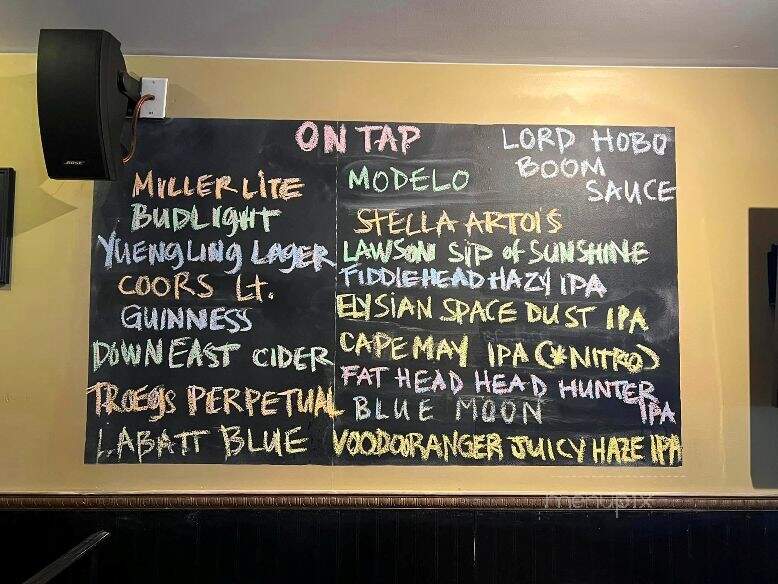 ON TAP
LORD HOBO
BOOM
SAUCE
MILLER LITE
BUDLIGHT
YUENGLING LAGER
COORS LT.
GUINNESS
DOWNEAST CIDER
TROEGS PERPETUAL
LABATT BLUE
MODELO
STELLA ARTOIS
LAWSON SIP of SUNSHINE
FIDDLEHEAD HAZY IPA
ELYSIAN SPACE DUST IPA
CAPE MAY IPA (*NITRO)
FAT HEAD HEAD HUNTER
IPA
BLUE MOON
VOODOORANGER JUICY HAZE IPA
BOSE
menupix